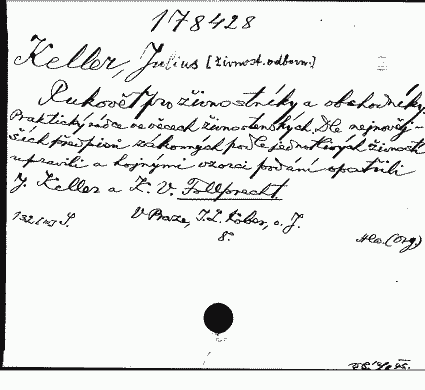 178428
Keller, Julius [živnost. odborn.]
Rukověť pro živnostníky a obchodníky.
Praktický rádce ve věcech živnostenských. Dle nejnověj-
ších předpisů zákonných podle jednotlivých živností
upravili a hojnými vzorci podání opatřili
J. Keller a K. V. Follprecht.
132 S. V Praze, I. L. Kober, o. J.
8°.